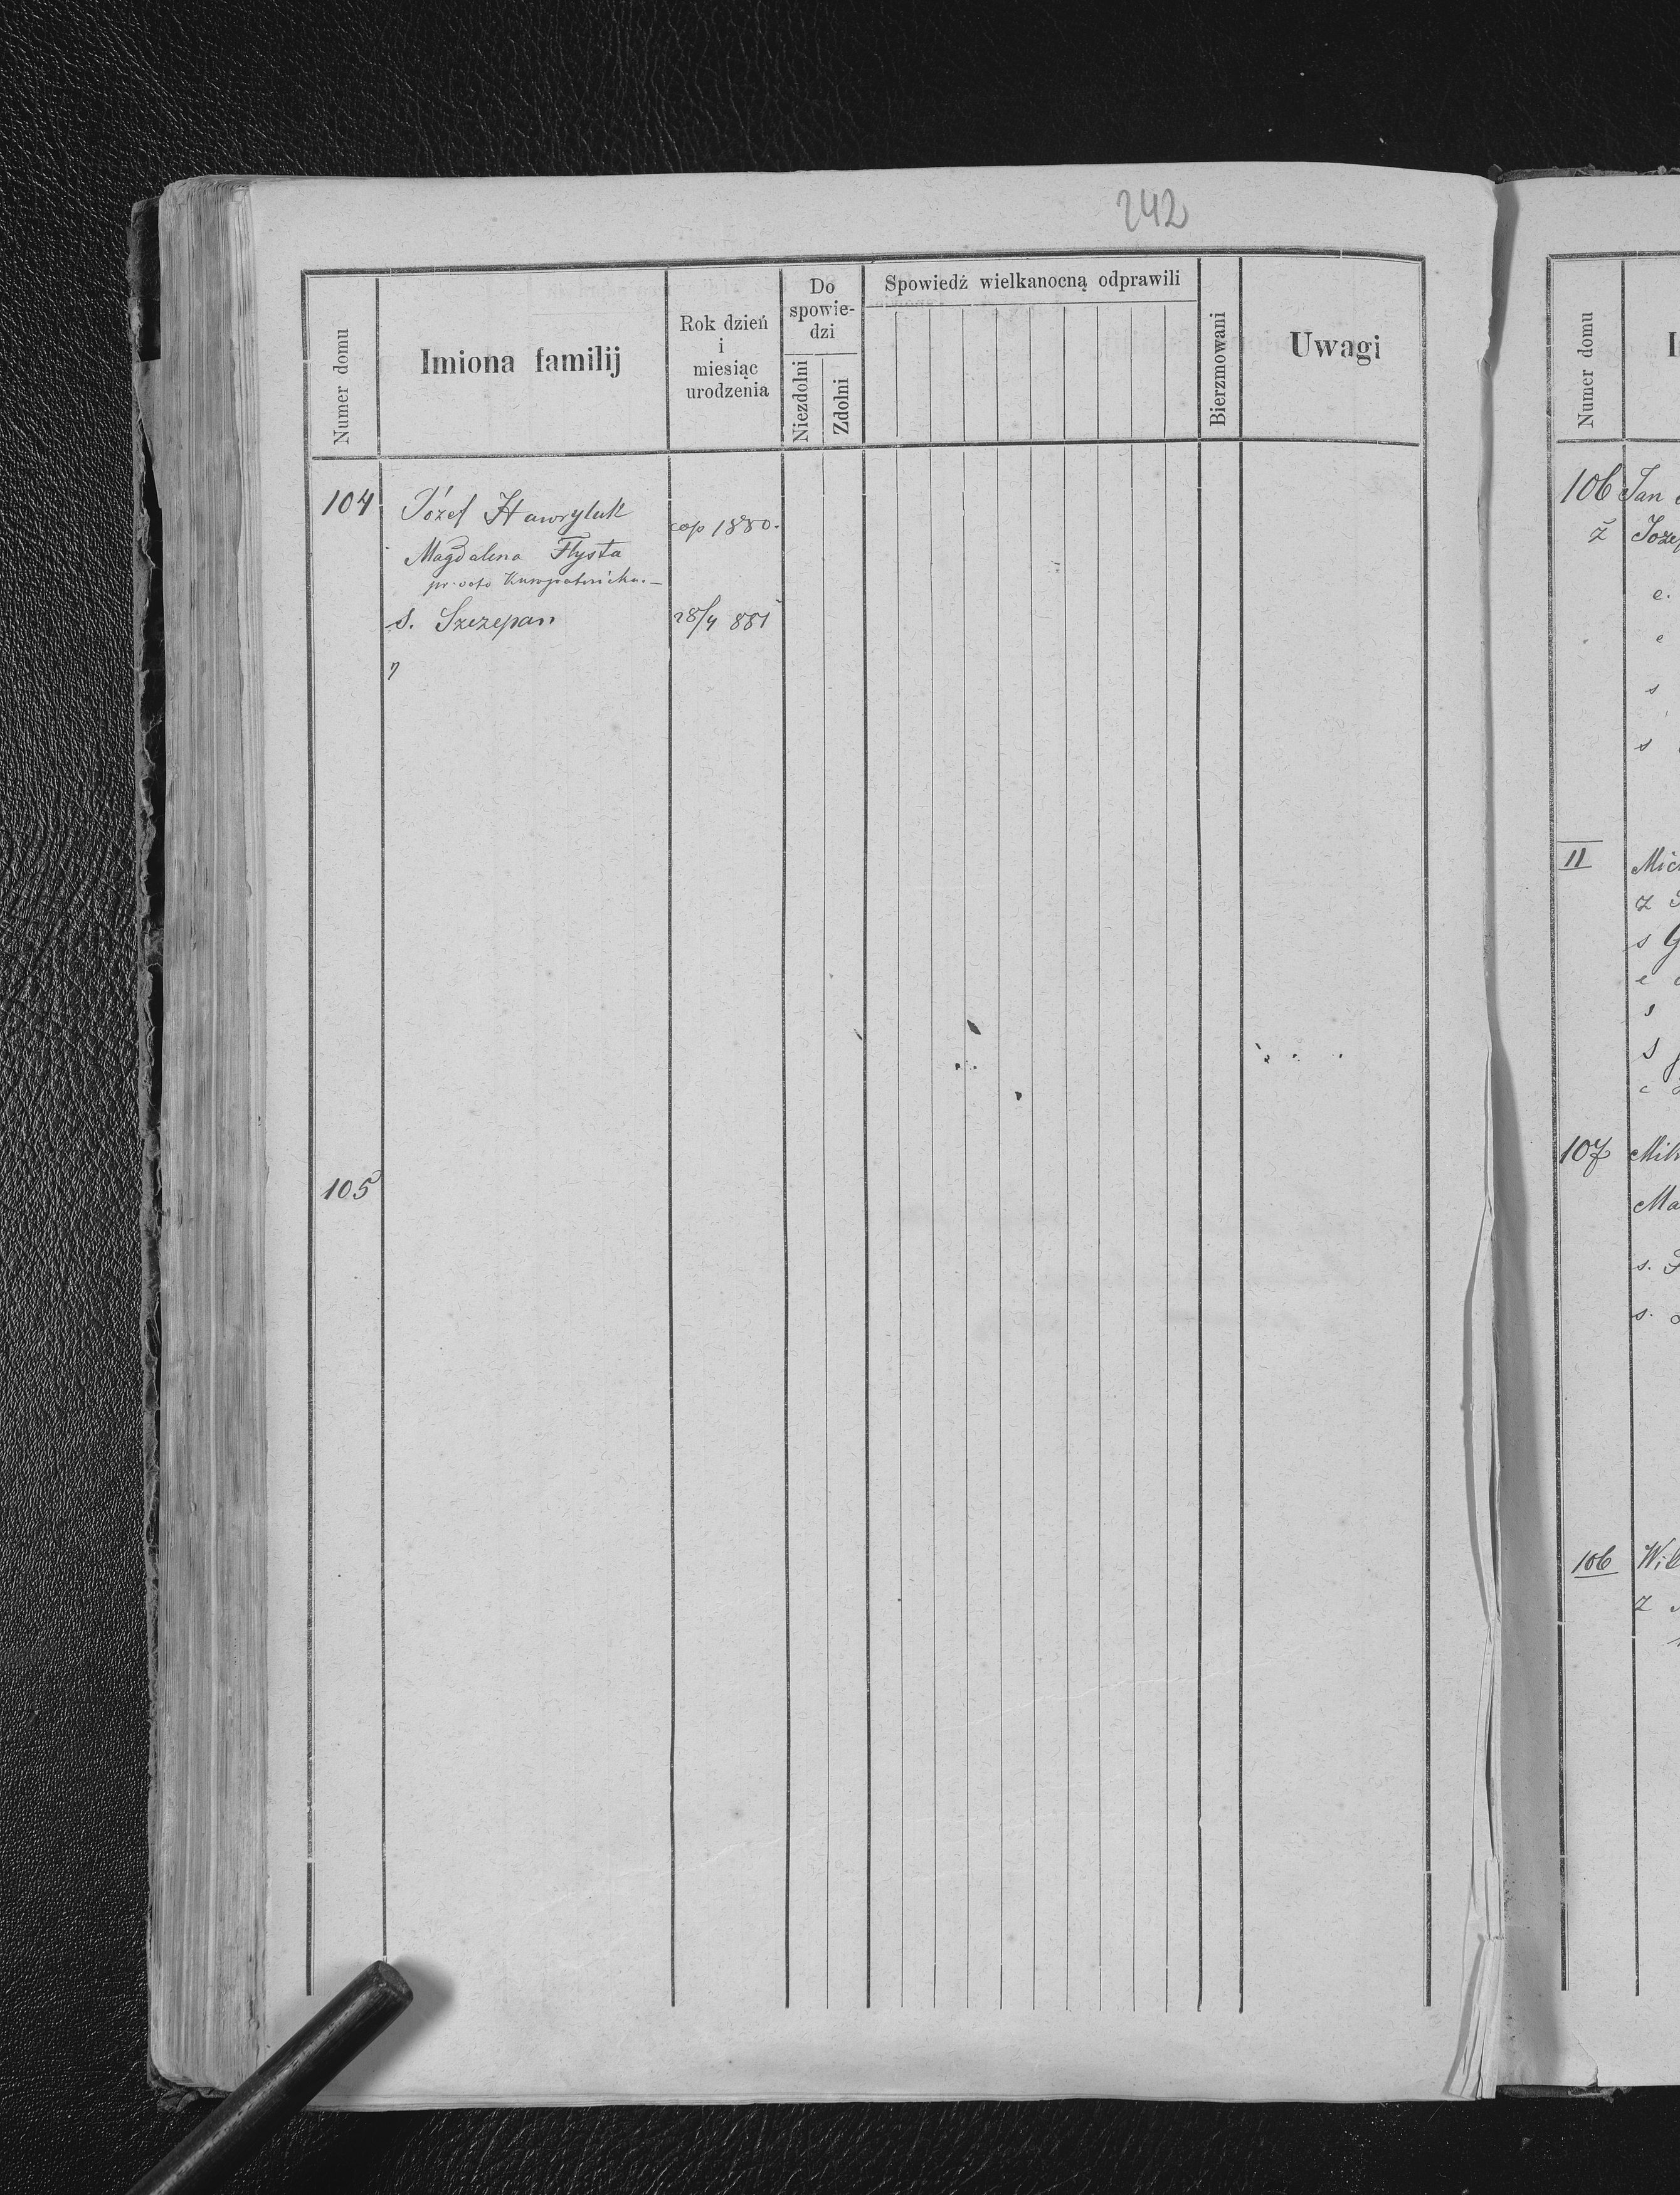 242
Numer domu
Imiona familij
Rok dzień
i
miesiąc
urodzenia
Do
spowie-
dzi
Niezdolni
Zdolni
Spowiedź wielkanocną odprawili
Bierzmowani
Uwagi
104 Józef Hawryluk
cop 1880.
Magdalena Flysta
pr. voto
s. Szczepan 28/4 881
105
Numer domu
106 Jan
ž
e.
e
s
s
II
z
s
e
s
s
c
107
s.
s.
106
z